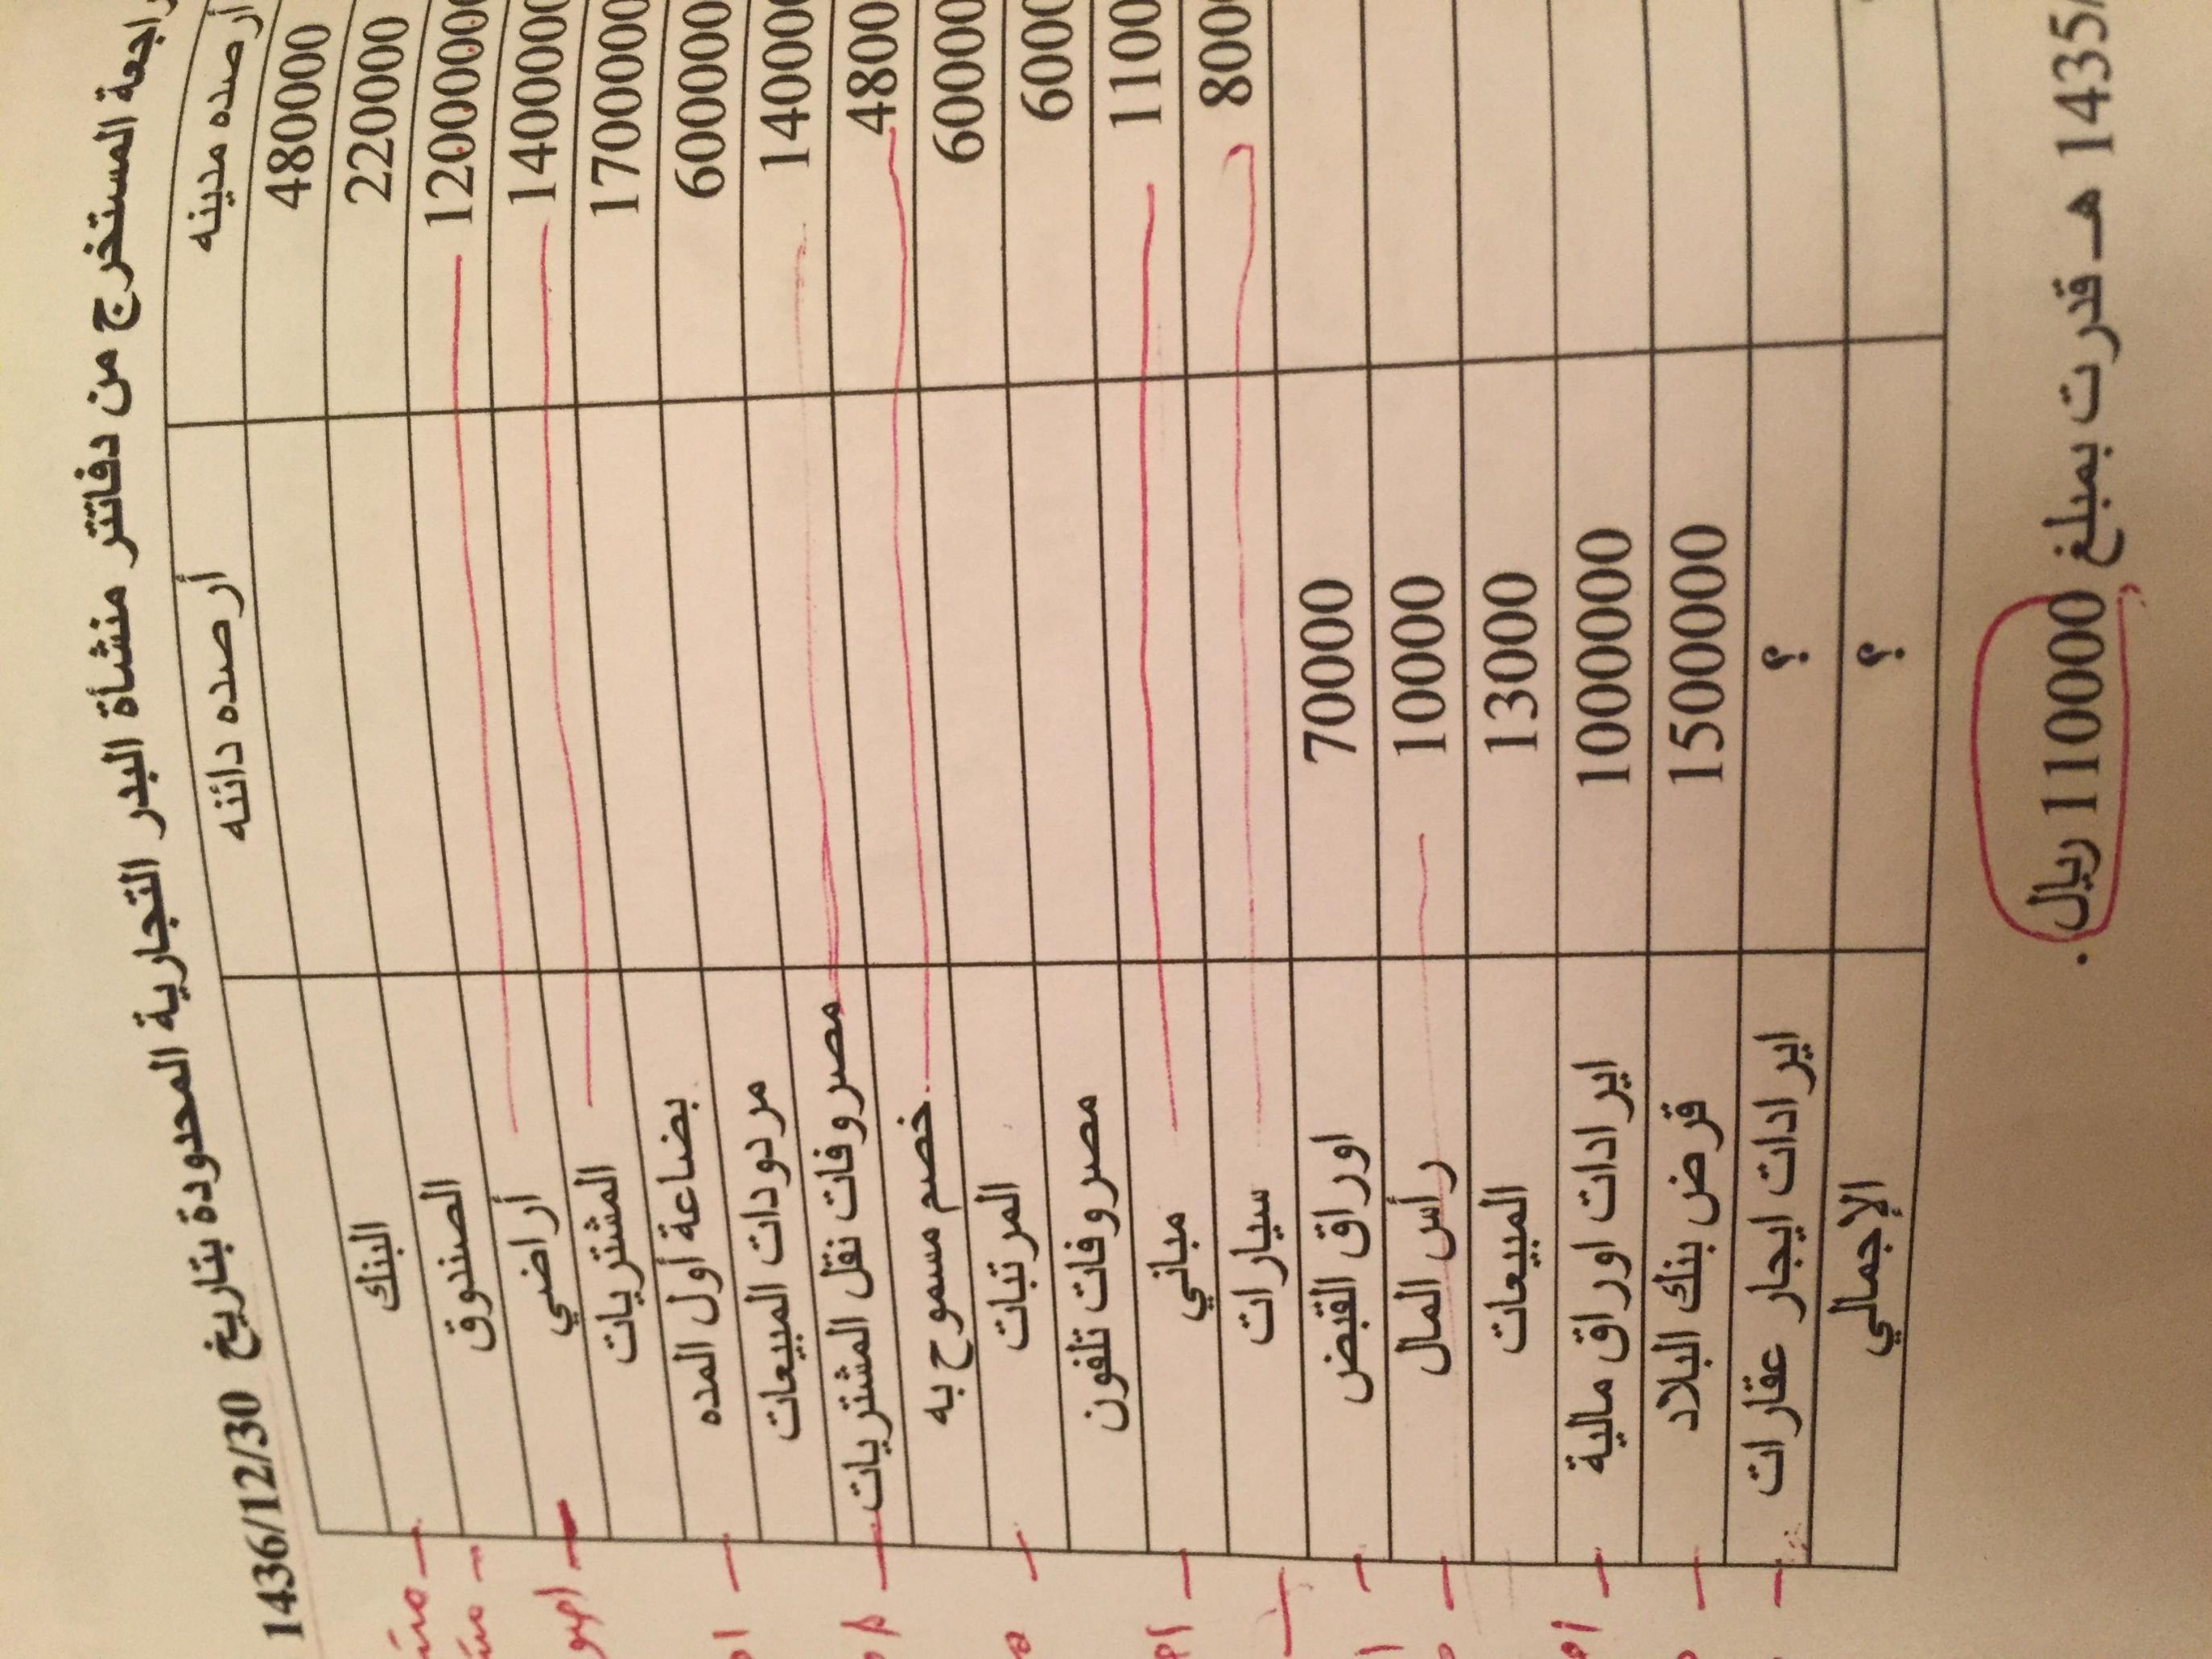 راجعة المستخرج من دفاتتر منشأة البدر التجارية المحدودة بتاريخ 1436/12/30
أرصده مدينه أرصده دائنه
480000 البنك
220000 الصندوق
1200000 أراضي
1400000 المشتريات
1700000 بضاعة أول المده
600000 مردودات المبيعات
14000 مصروفات نقل المشتريات
4800 خصم مسموح به
60000 المرتبات
6000 مصروفات تلفون
1100 مباني
8000 سيارات
70000 اوراق القبض
10000 رأس المال
13000 المبيعات
1000000 ايرادات اوراق مالية
1500000 قرض بنك البلاد
؟ ايرادات ايجار عقارات
؟ الإجمالي
1435/ هـ قدرت بمبلغ 110000 ريال.